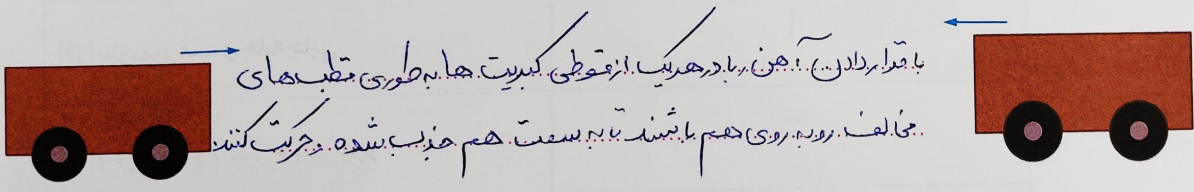 با قرار دادن آهن ربا در هریک از قوطی کبریت ها به طوری قطب های
مخالف روبه روی هم باشند تا به سمت هم جذب شده و حرکت کنند.